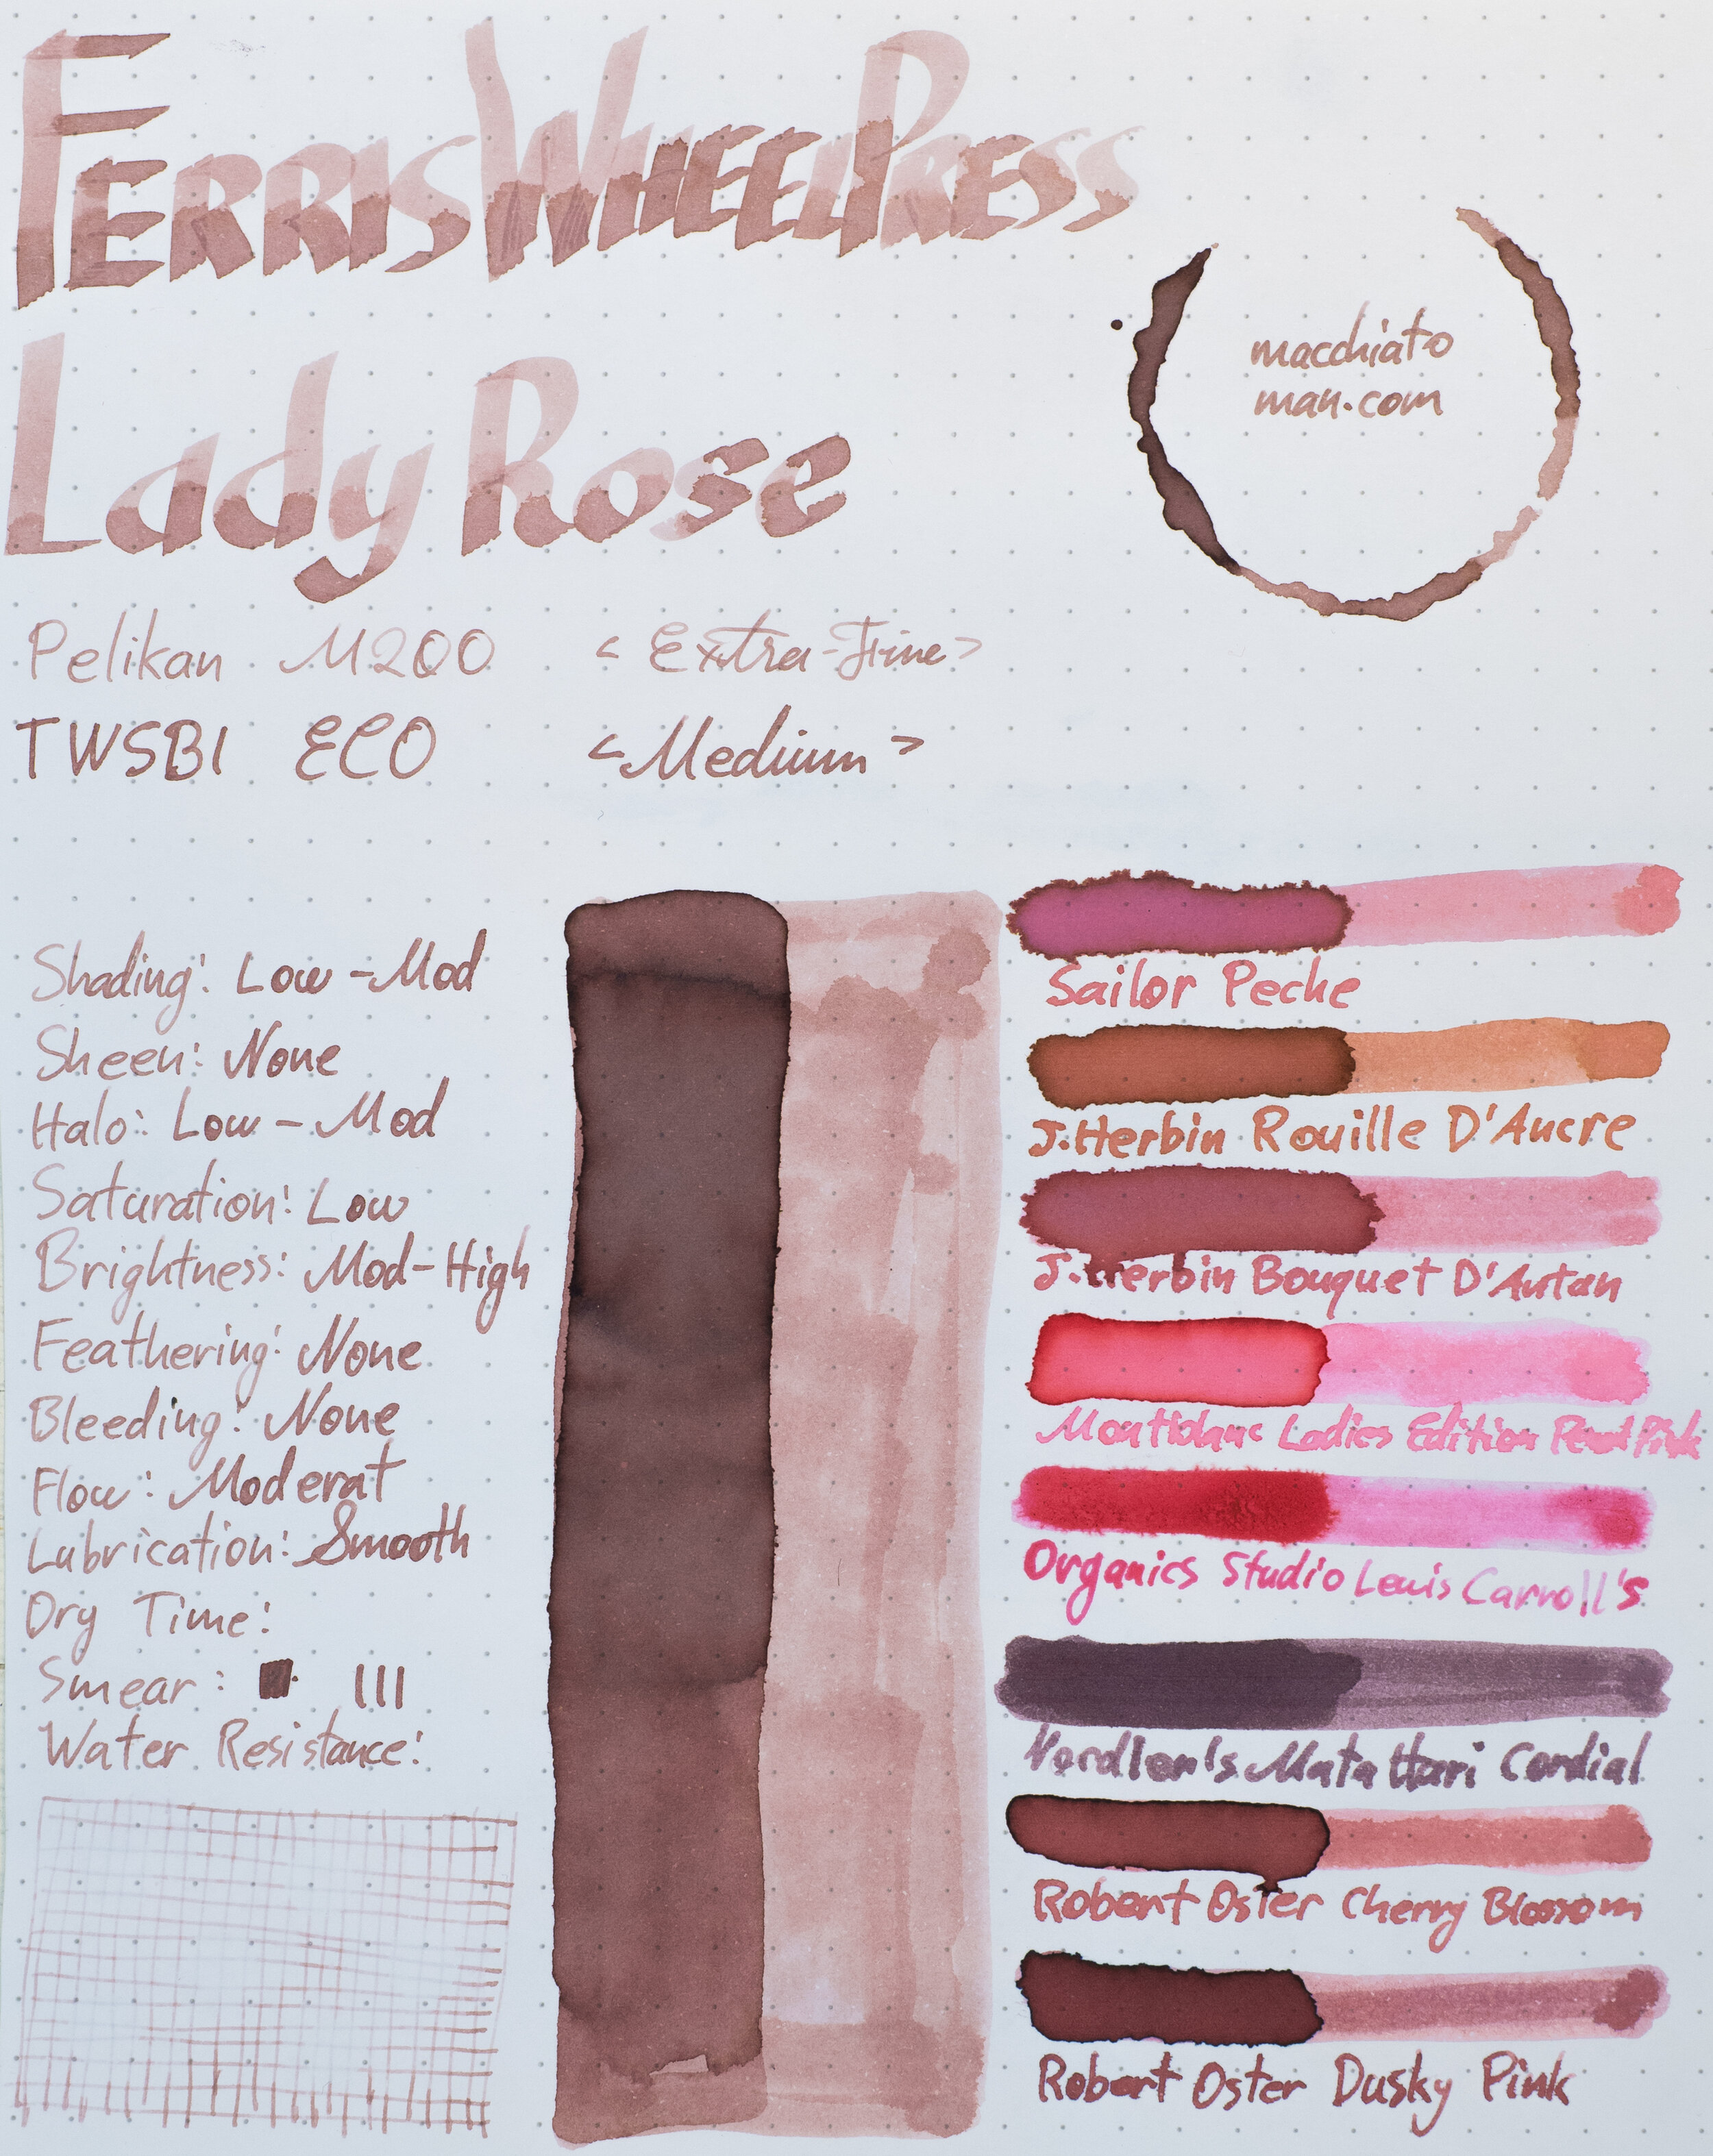 Ferris Wheel Press
Lady Rose
macchiato
man.com
Pelikan M200 <Extra-Fine>
TWSBI ECO <Medium>
Shading: Low-Mod
Sheen: None
Halo: Low-Mod
Saturation: Low
Brightness: Mod-High
Feathering: None
Bleeding: None
Flow: Moderat
Lubrication: Smooth
Dry Time:
Smear:
Water Resistance:
Sailor Peche
J.Herbin Rouille D'Ancre
J.Herbin Bouquet D'Antan
Montblanc Ladies Edition Pearl Pink
Organics Studio Lewis Carroll's
Mata Hari Cordial
Robert Oster Cherry Blossom
Robert Oster Dusky Pink